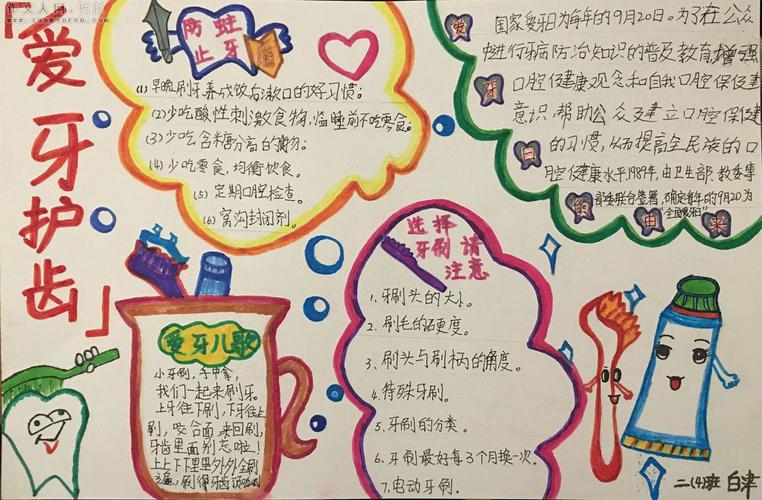 「爱牙护齿」
防蛀
止牙
(1)早晚刷牙养成饭后漱口的好习惯；
(2)少吃酸性刺激食物，临睡前不吃零食；
(3)少吃含糖分高的食物；
(4)少吃零食，均衡饮食。
(5)定期口腔检查。
(6)窝沟封闭剂。
爱牙日的由来
国家爱牙日为每年的9月20日。为了在公众
中进行牙病防治知识的普及教育，增强
口腔健康观念和自我口腔保健
意识，帮助公众建立口腔保健
的习惯，从而提高全民族的口
腔健康水平1989年，由卫生部、教委等
部委联合签署，确定每年的9月20为
“全国爱牙日”
选择
牙刷請
注意
1、牙刷头的大小。
2、刷毛的硬度。
3、刷头与刷柄的角度。
4、特殊牙刷。
5、牙刷的分类。
6、牙刷最好每3个月换一次。
7、电动牙刷.
爱牙儿歌
小牙刷，手中拿，
我们一起来刷牙。
上牙往下刷，下牙往上
刷，咬合面，来回刷，
牙齿里面别忘啦！
上上下下里里外外全刷
二(4)班 白津